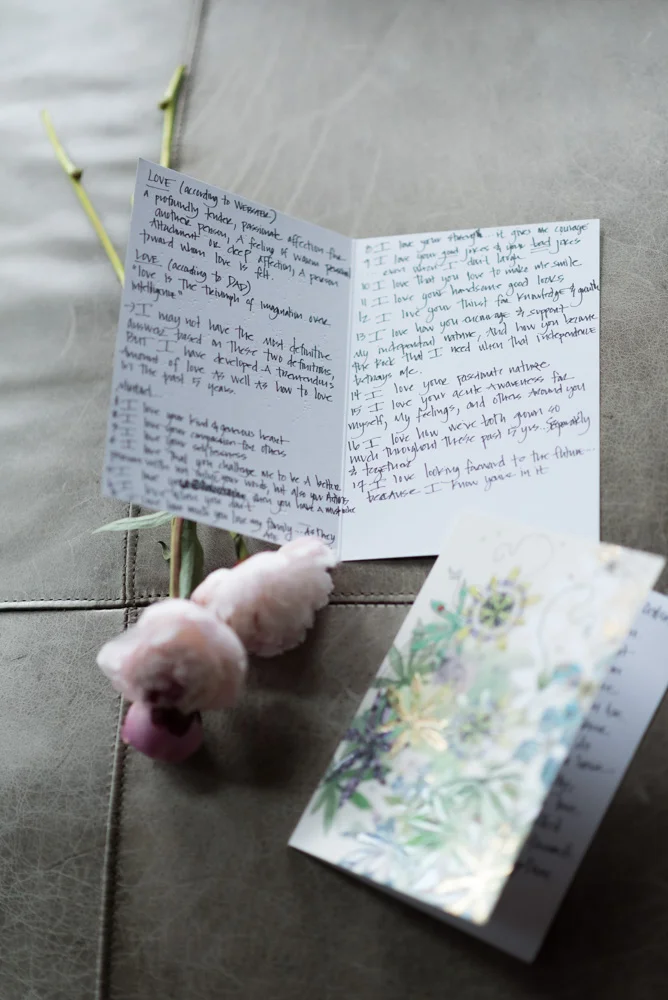 LOVE (according to WEBSTER)
A profoundly tender, passionate affection for
another person, A feeling of warm personal
Attachment or deep affection, A person
toward whom love is felt.
LOVE (according to DAD)
"Love is the Triumph of imagination over
Intelligence"
→ I may not have the most definitive
answers based on these two definitions,
But I have developed A tremendous
Amount of love As well As how to love
in the past 5 years.
I love your kind & generous heart
I love your compassion for others
I love your selflessness
that you challenge me to be A better
your words, but also your Actions
when you have A
when you don't
you love my family... As they
Are
8 I love your strength it gives me courage
9 I love your good jokes & your bad jokes
even when I don't laugh
10 I love that you love to make me smile
11 I love your handsome good looks
12 I love your thirst for knowledge & growth
13 I love how you encourage & support
My independent nature, And how you become
the rock that I need when that independence
betrays me.
14 I love your passionate nature
15 I love your acute Awareness for
myself, My feelings, and others Around you
16 I love how we've both grown so
much throughout these past 5 yrs... Separately
& together
17 I love looking forward to the future...
because I know you're in it